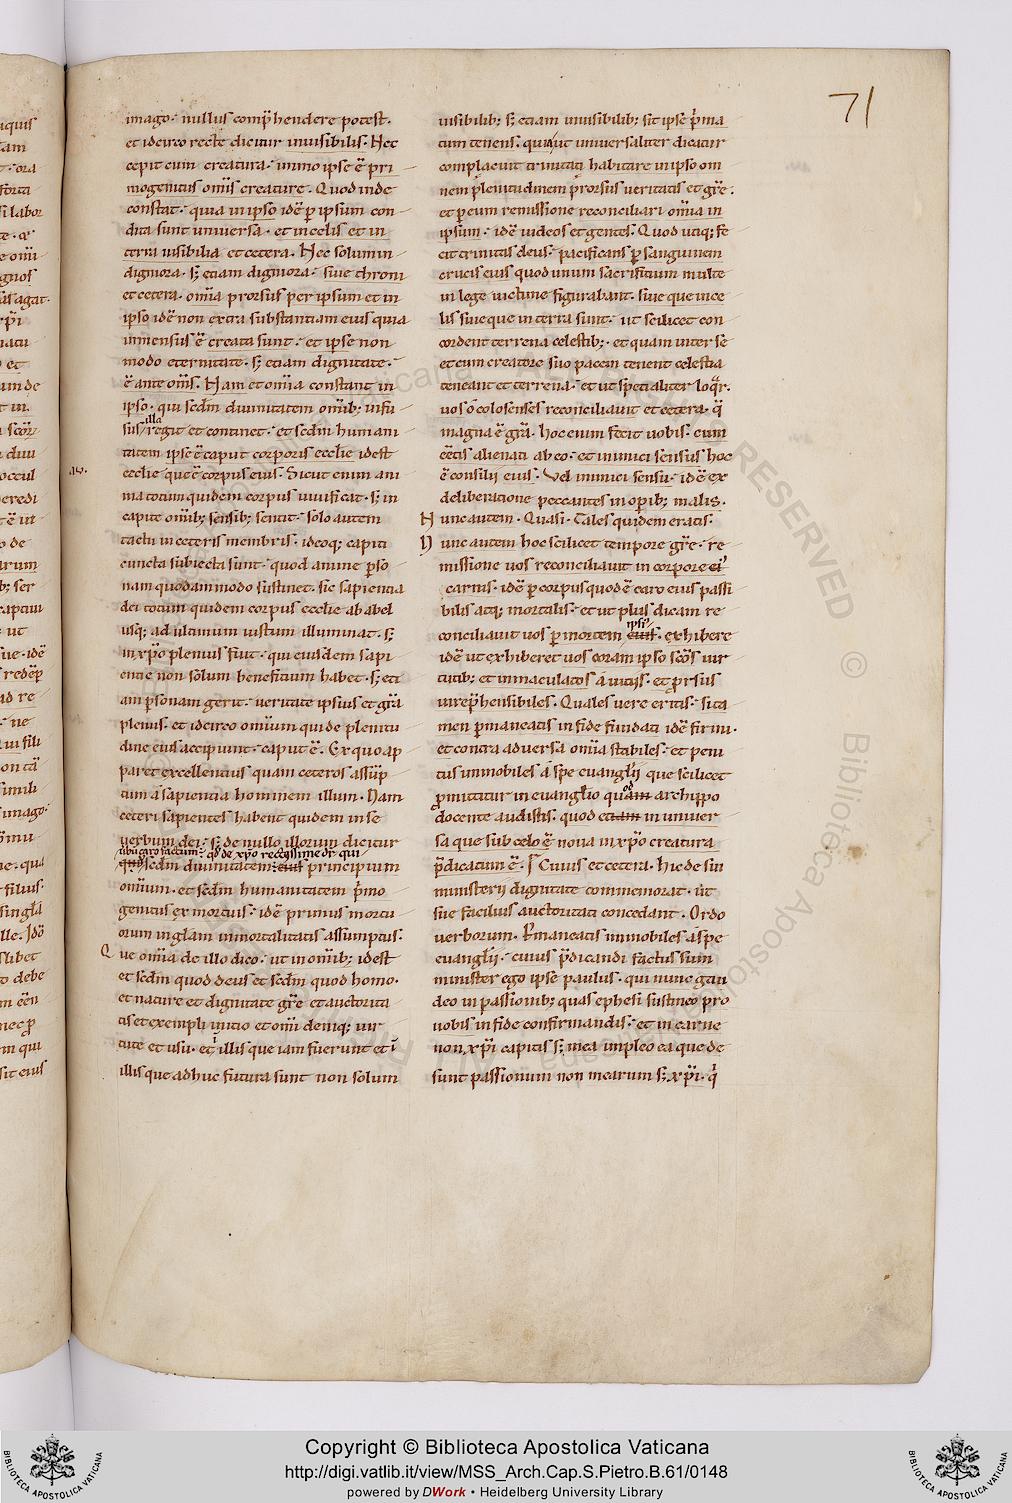 71
imago. nullus comp̄hendere potest.
et idcirco recte dicitur inuisibilis. Nec
cepit cum creatura. immo ipse ē pri
mogenitus om̄is creature. Quod inde
constat. quia in ipso idē ꝑ ipsum con
dita sunt uniuersa. et in celis et in
terra uisibilia et cetera. Nec solum in
digniora. s; etiam digniora. siue throni
et cetera. om̄ia prorsus per ipsum et in
ipso idē non extra substantiam eius quia
inmensus ē creata sunt. et ipse non
modo eternitate. s; etiam dignitate.
ē ante om̄s. Nam et om̄ia constant in
ipso. qui scd̄m diuinitatem omib; infu
sus illa regit et continet. et scd̄m humani
tatem ipse ē caput corporis ecclie idest
ecclie que ē corpus eius. Sicut enim ani
ma totum quidem corpus uiuificat. s; in
capite omīb; sensib; sentit. solo autem
tactu in ceteris membris. ideoq; capiti
cuncta subiecta sunt. quod anime ꝑso
nam quodammodo sustinet. sic sapientia
dei totum quidem corpus ecclie ab abel
usq; ad ultimum iustum illuminat. s;
in xp̄o plenius fuit. qui eiusdem sapi
entie non solum beneficium habet. s; eti
am ꝑsonam gerit. ueritate ipsius et gr̄a
plenus. et idcirco omīum qui de plenitu
dine eius accipiunt. caput ē. Ex quo ap
paret excellentius quam ceteros assūp
tum a sapientia hominem illum. Nam
ceteri sapientes habent quidem in se
uerbum dei. s; de nullo illorum dicitur
uerbū caro factum. qd̄ de xp̄o rectissime dr̄ qui
scd̄m diuinitatem. principium
omīum. et scd̄m humanitatem p̄mo
genitus ex mortuis. idē primus mortu
orum in glām inmortalitatis assumptus.
Que om̄ia de illo dico. ut in omīb; idest
et scd̄m quod deus et scd̄m quod homo.
et nature et dignitate gr̄e et auctorita
tis et exempli initio et om̄i deniq; uir
tute et usu. et ī illis que iam fuerunt et ī
illis que adhuc futura sunt non solum
uisibilib; s; etiam inuisibilib; sit ipse p̄ma
tum tenens. quia ut uniuersaliter dicatur
complacuit trinitati habitare in ipso om
nem plenitudinem prorsus ueritatis et gr̄e.
et per eum remissione reconciliari om̄ia in
ipsum. idē iudeos et gentes. Quod utiq; fe
cit trinitas deus. pacificans ꝑ sanguinem
crucis eius quod unum sacrificium multe
in lege uictime figurabant. siue que in ce
lis siue que in terra sunt. ut scilicet con
cordent terrena celestib;. et quam inter se
et cum creatore suo pacem tenent celestia
teneant et terrena. et ut specialiter loqr̄.
uos o colosenses reconciliauit et cetera. q̄
magna ē gr̄a. hoc enim fecit uobis. cum
eētis alienati ab eo. et inimici sensus hoc
ē consilii eius. Vel inimici sensu. idē ex
deliberatione peccantes in oꝑib; malis.
Nunc autem. Quasi. Tales quidem eratis.
Nunc autem hoc scilicet tempore gr̄e. re
missione uos reconciliauit in corpore ei'
carnis. idē ꝑ corpus quod ē caro eius passi
bilis atq; mortalis. et ut plus dicam re
conciliauit uos ꝑ mortem ipsi'. exhibere
idē ut exhiberet uos coram ipso scōs uir
tutib; et inmaculatos a uitiis. et prorsus
irrep̄hensibiles. Quales uere eritis. si ta
men ꝑmaneatis in fide fundati idē firmi.
et contra aduersa om̄ia stabiles. et peni
tus inmobiles a spe euangl̄ii que scilicet
promittitur in euangl̄io quod archippo
docente audistis. quod in uniuer
sa que sub celo ē noua in xp̄o creatura
p̄dicatum ē. Cuius et cetera. hic de sui
ministerii dignitate commemorat. ut
sue facilius auctoritati concedant. Ordo
uerborum. ꝑmaneatis inmobiles a spe
euangl̄ii. cuius p̄dicandi factus sum
minister ego ipse paulus. qui nunc gau
deo in passionib; quas ephesi sustineo pro
uobis in fide confirmandis. et in carne
non xp̄i capitis s; mea impleo ea que de
sunt passionum non mearum s; xp̄i. q̄
Copyright © Biblioteca Apostolica Vaticana
http://digi.vatlib.it/view/MSS_Arch.Cap.S.Pietro.B.61/0148
powered by DWork • Heidelberg University Library